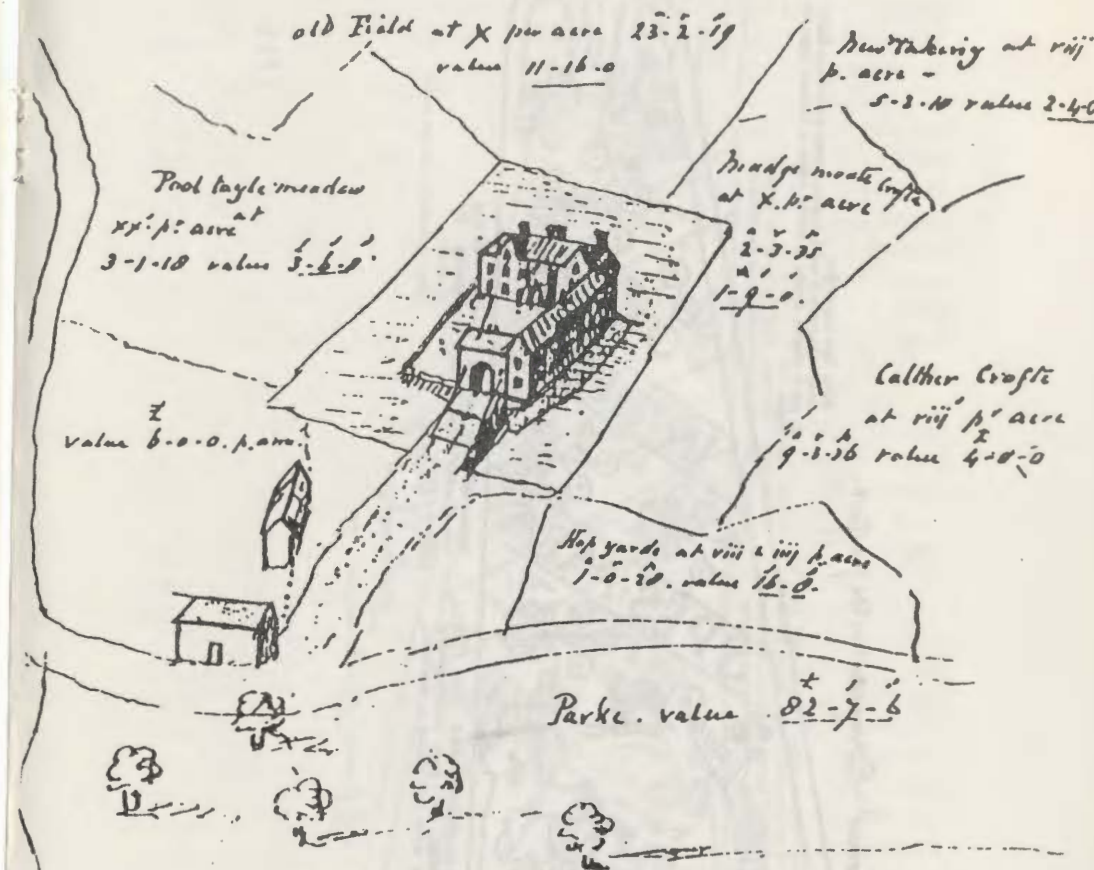 old Field at X per acre 23-2-19
value 11-16-0
New Takeing at viij
p. acre -
5-2-10 value 2-4-0
Pool tayle meadow
xxˢ pʳ acre at
3-1-18 value 3-6-8
moate Crofte
at X. pʳ acre
a r p
2-3-35
1-9-0.
value 6-0-0. p. ann.
Calther Crofte
at viijˢ pʳ acre
a r p
9-3-36 value 4-0-0
Hop yarde at viii & iiij p. acre
1-0-28. value 16-8.
Parke. value 82-7-6